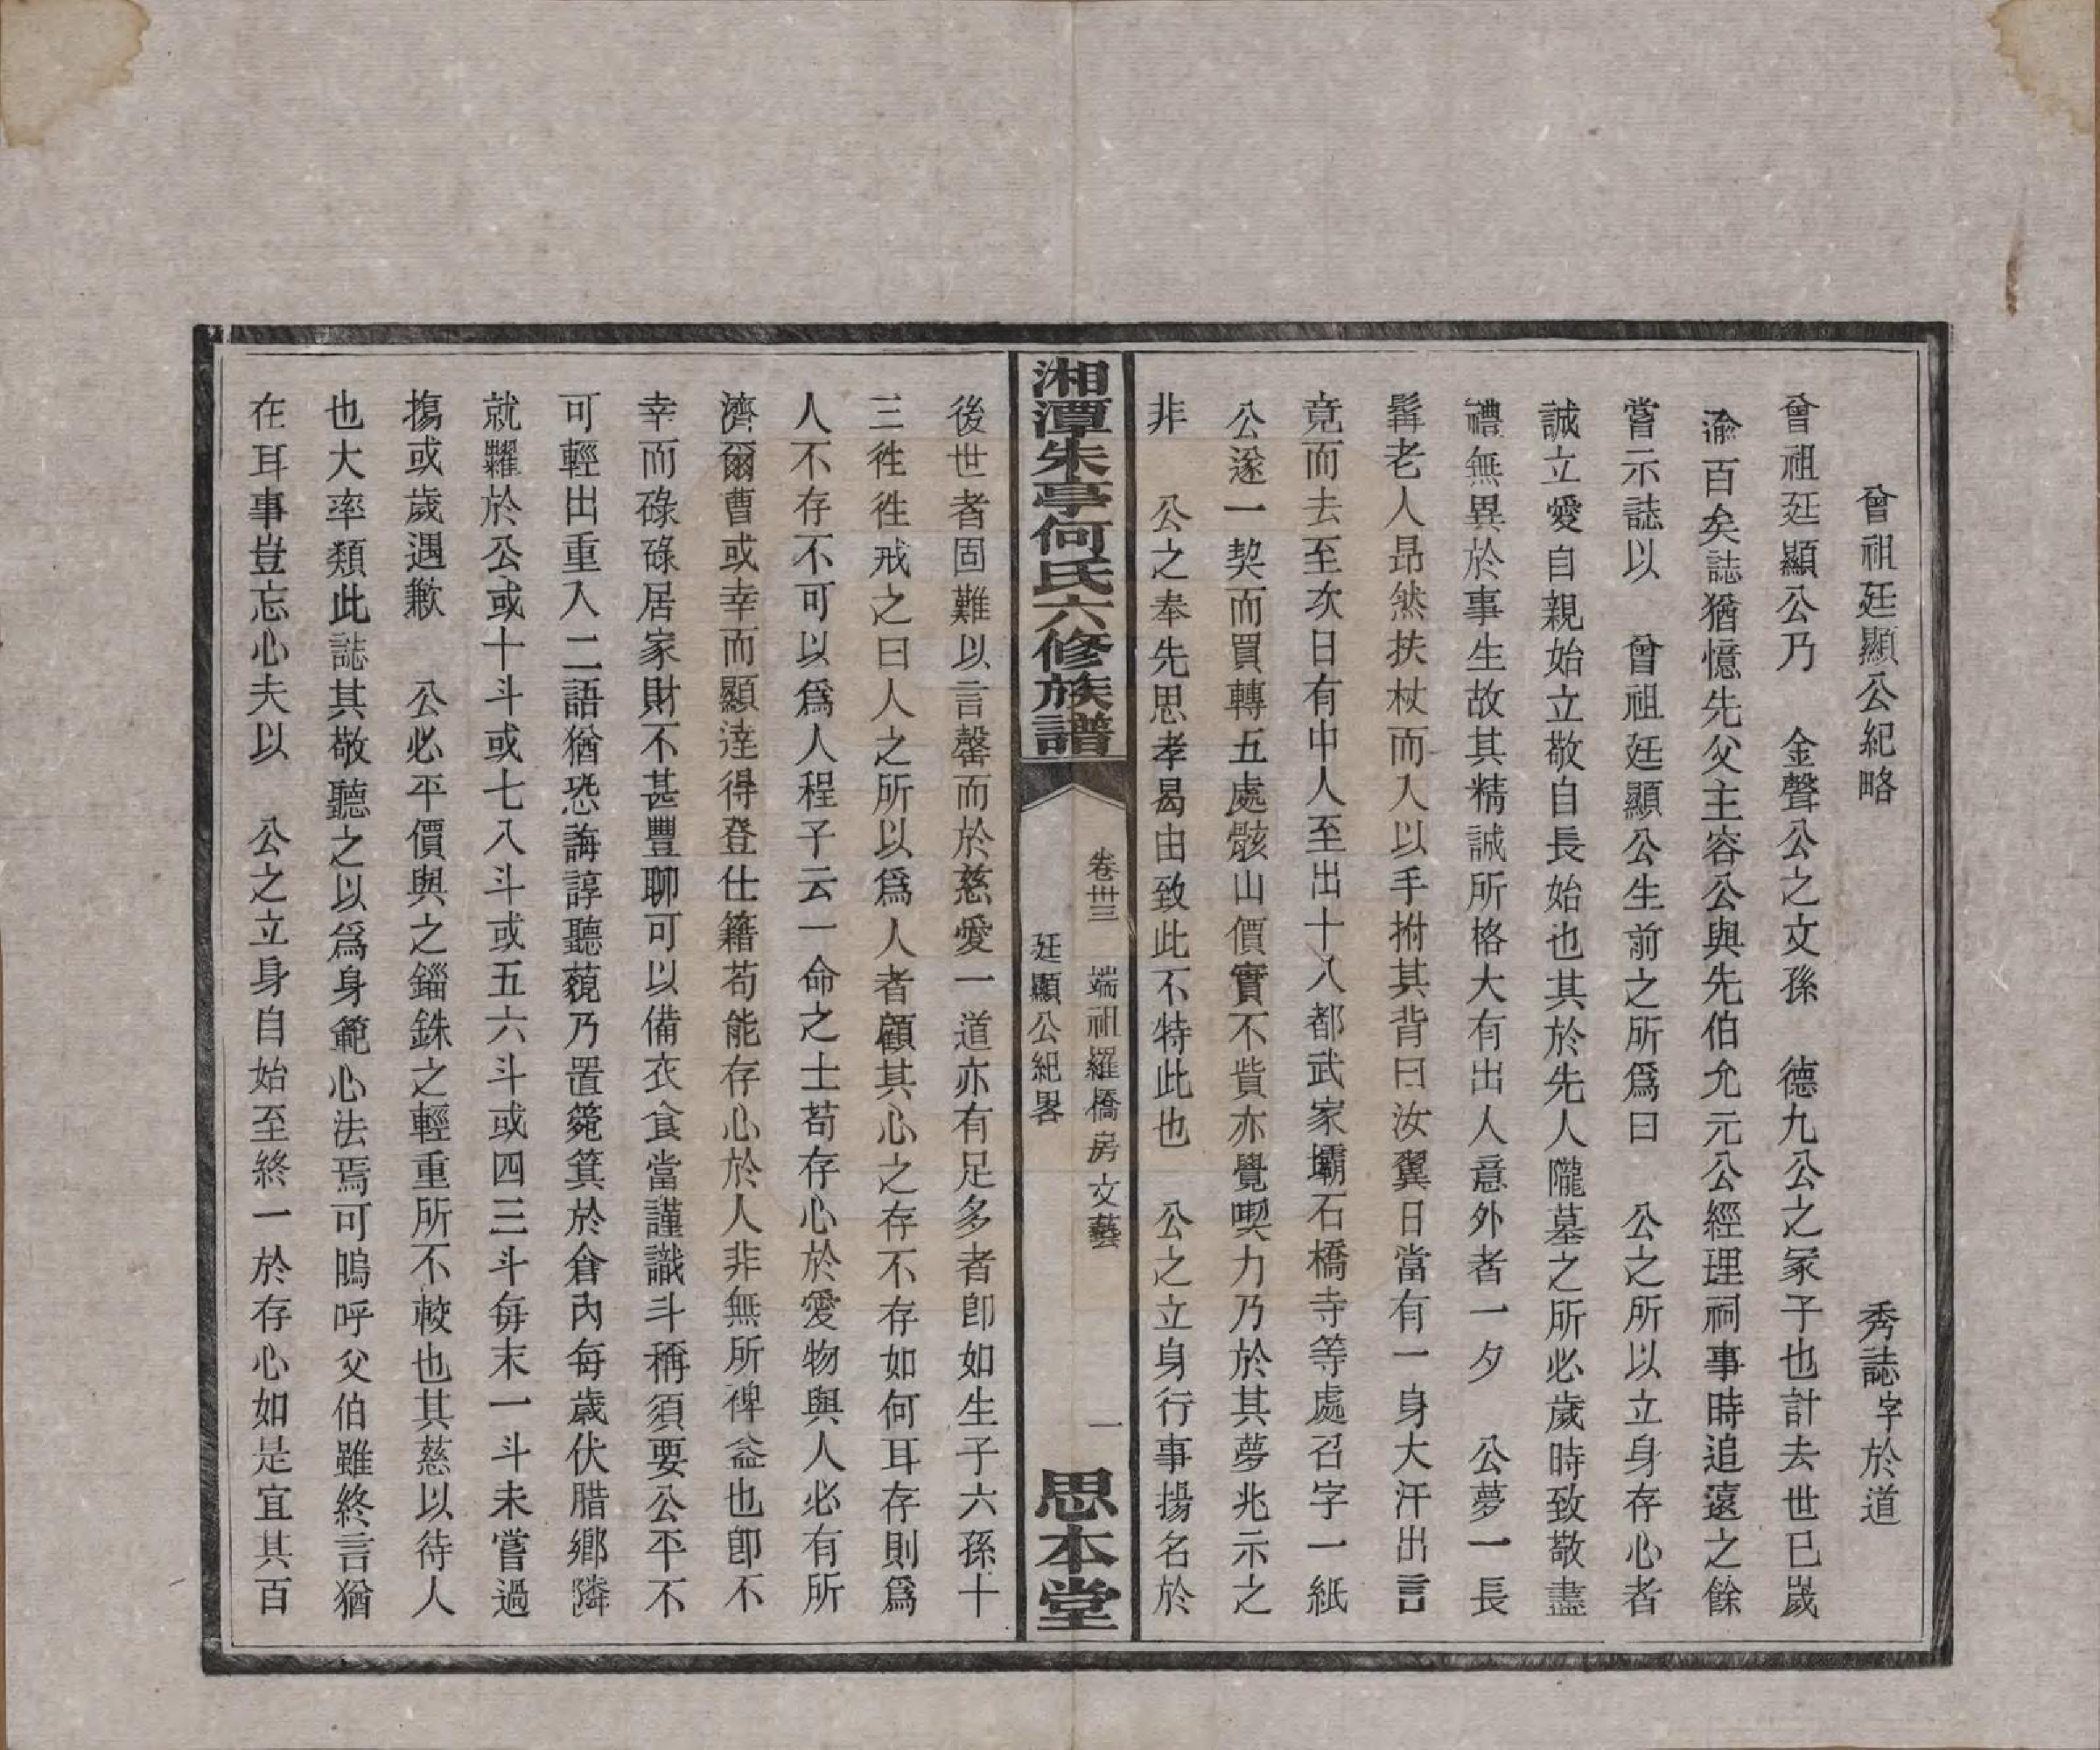 曾祖廷顯公紀略　秀誌字於道
曾祖廷顯公乃　金聲公之文孫　德九公之冢子也計去世已嵗
渝百矣誌猶憶先父主容公與先伯允元公經理祠事時追遠之餘
嘗示誌以　曾祖廷顯公生前之所爲曰　公之所以立身存心者
誠立愛自親始立敬自長始也其於先人隴墓之所必歲時致敬盡
禮無異於事生故其精誠所格大有出人意外者一夕　公夢一長
髯老人昂然扶杖而入以手拊其背曰汝翼日當有一身大汗出言
竟而去至次日有中人至出十八都武家壩石橋寺等處召字一紙
公遂一契而買轉五處骸山價實不貲亦覺喫力乃於其夢兆示之
非　公之奉先思孝曷由致此不特此也　公之立身行事揚名於
湘潭朱亭何氏六修族譜
卷卅三　端祖羅橋房文藝
廷顯公紀畧
一
思本堂
後世者固難以言罄而於慈愛一道亦有足多者卽如生子六孫十
三徃徃戒之曰人之所以爲人者顧其心之存不存如何耳存則爲
人不存不可以爲人程子云一命之士苟存心於愛物與人必有所
濟爾曹或幸而顯達得登仕籍苟能存心於人非無所裨益也卽不
幸而碌碌居家財不甚豐聊可以備衣食當謹識斗稱須要公平不
可輕出重入二語猶恐誨諄聽藐乃置筦箕於倉內每歲伏腊鄉隣
就糶於公或十斗或七八斗或五六斗或四三斗每末一斗未嘗過
搊或歲遇歉　公必平價與之錙銖之輕重所不較也其慈以待人
也大率類此誌其敬聽之以爲身範心法焉可嗚呼父伯雖終言猶
在耳事豈忘心夫以　公之立身自始至終一於存心如是宜其百